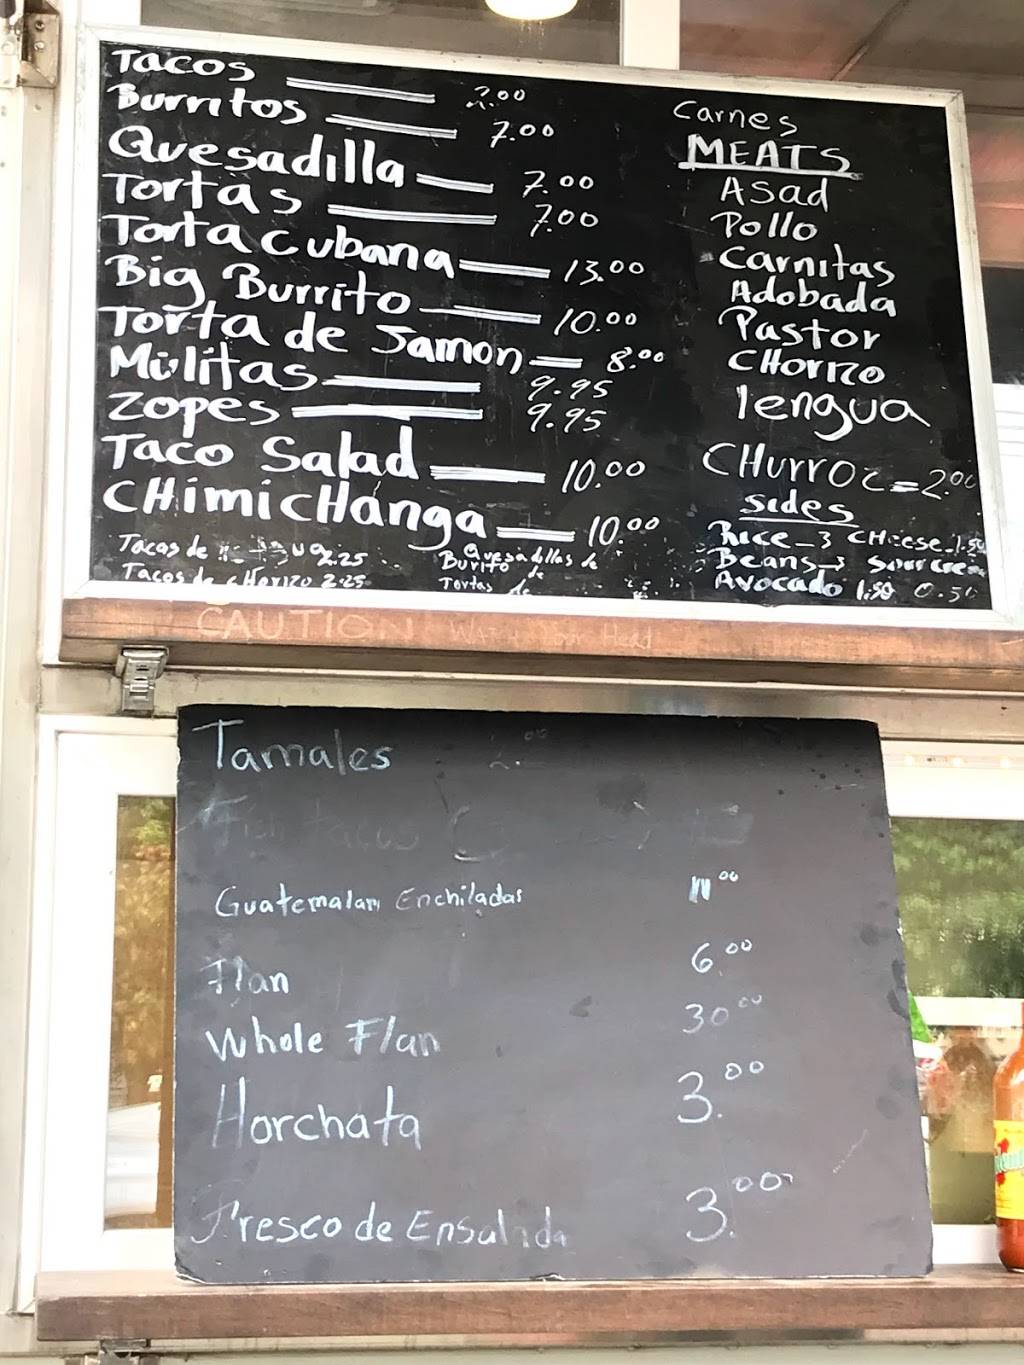 Tacos 2.00
Burritos 7.00
Quesadilla 7.00
Tortas 7.00
Torta cubana 13.00
Big Burrito 10.00
Torta de Jamon 8.00
Mulitas 9.95
Zopes 9.95
Taco Salad 10.00
CHimicHanga 10.00
Tacos de 2.25
Tacos de cHorizo 2.25
Quesadillas de
Burito de
Tortas de
Carnes
MEATS
Asad
Pollo
Carnitas
Adobada
Pastor
CHorizo
lengua
CHurroz = 2.00
Sides
Rice - 3 CHeese - 1.50
Beans - 3 Sour cre
Avocado 1.50 0.50
CAUTION Watch Your Head
Tamales 2.00
Fish tacos
Guatemalan Enchiladas 11.00
Flan 6.00
Whole Flan 30.00
Horchata 3.00
Fresco de Ensalada 3.00